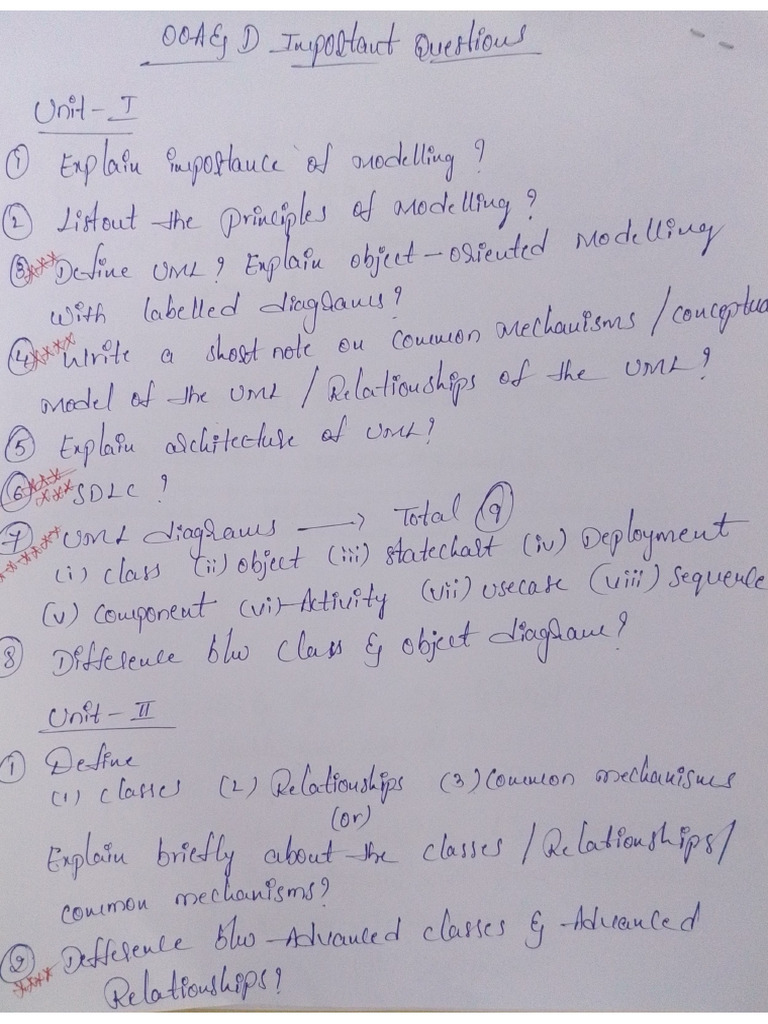 OOA & D Important Questions
Unit - I
① Explain importance of modelling?
② Listout the principles of modelling?
③*** Define UML? Explain object-oriented modelling
with labelled diagrams?
④**** Write a short note on common mechanisms / conceptua
model of the UML / Relationships of the UML?
⑤ Explain architecture of UML?
⑥*** *** SDLC?
⑦**** UML diagrams → Total ⑨
(i) class (ii) object (iii) statechart (iv) Deployment
(v) component (vi) Activity (vii) usecase (viii) sequence
⑧ Difference b/w class & object diagram?
Unit - II
① Define
(1) classes (2) Relationships (3) common mechanisms
(or)
Explain briefly about the classes / Relationships /
common mechanisms?
② *** Difference b/w Advanced classes & Advanced
Relationships?